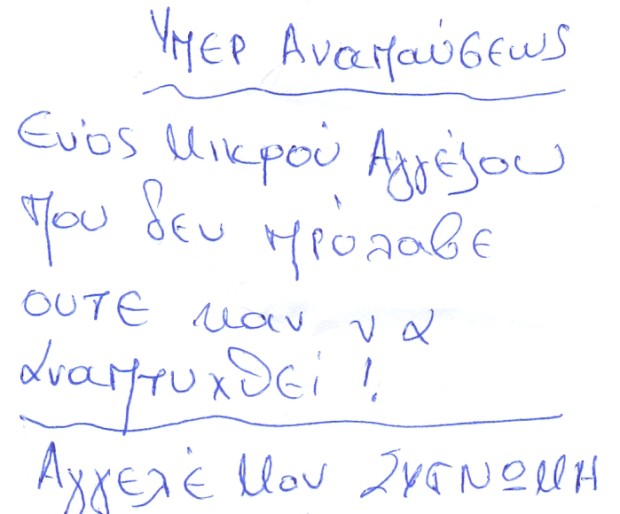 Υπερ Αναπαύσεως
Ενός Μικρού Αγγέλου
που δεν πρόλαβε
ουτε καν να
αναπτυχθεί !
Αγγελέ μου ΣΥΓΝΩΜΗ